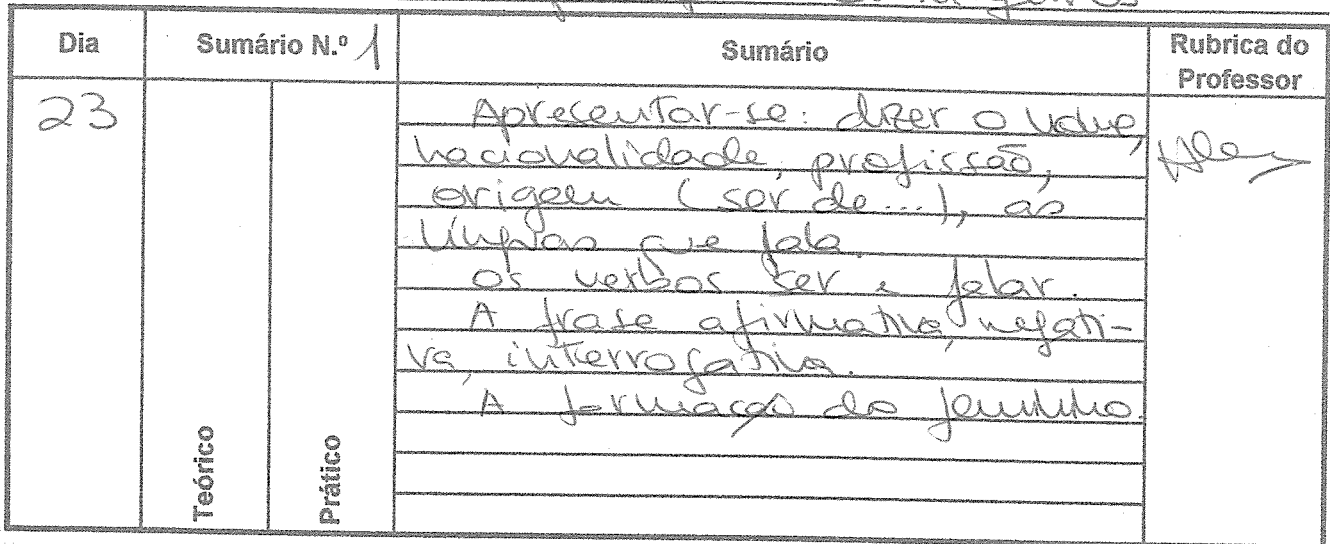 Dia Sumário N.º 1 Sumário Rubrica do Professor
23
Apresentar-se: dizer o nome,
nacionalidade, profissão,
origem (ser de...), as
línguas que fala.
Os verbos ser e falar.
A frase afirmativa, negati-
va, interrogativa.
A formação do feminino.
Teórico
Prático